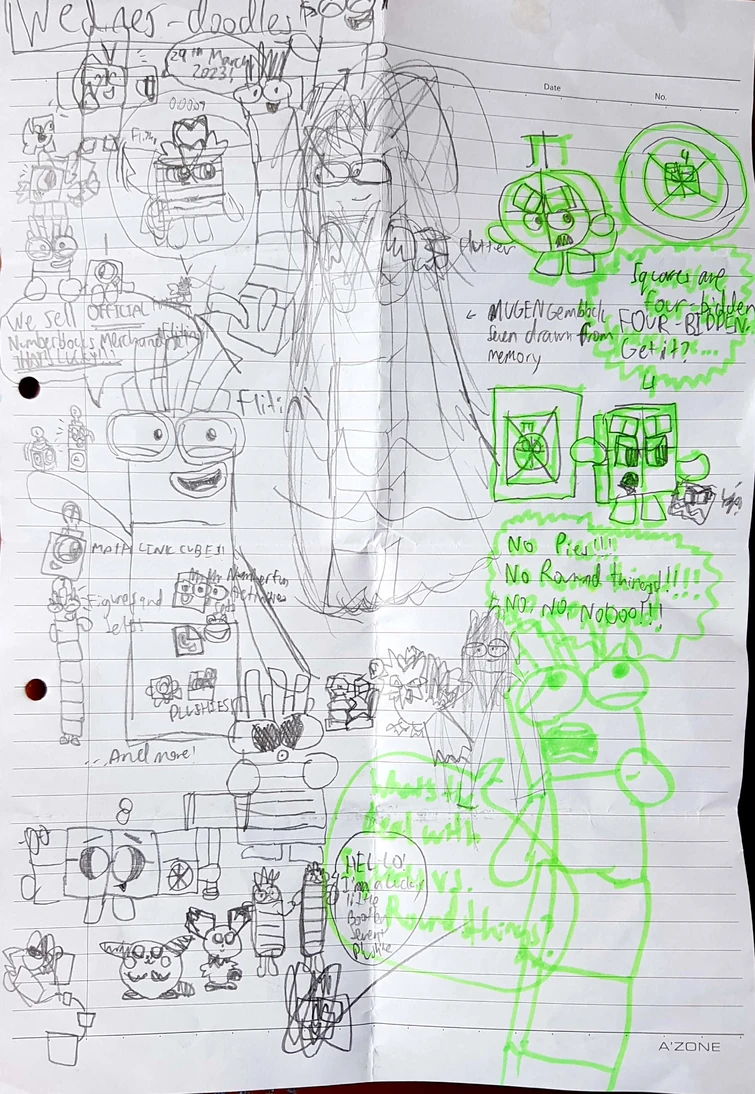 Wednes-doodles
29th March
2023!
Date
No.
00009
Flutter
Squares are
four-bidden
FOUR-BIDDEN,
Get it?...
We sell OFFICIAL
Numberblocks Merchandise
THAT'S LUCKY!!!
← MUGENGemblock
Seven drawn from
memory
4
MATH LINK CUBES!!
Figures and
Sets!!
Numberfun
Activities
PLUSHIES!
...And more!
No Pies!!!
No Round things!!!!
No, No, Noooo!!!
8
What's the
deal with
vs.
Round things?
HEL-LO!
I'm a Lucky
little
Bootleg
Seven
Plushie
A'ZONE